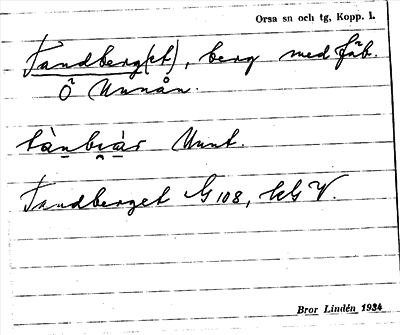 Orsa sn och tg, Kopp. l.
Tandberg(et), berg med fäb.
Ö Unnån.
tànbær Uunt.
Tandberget G 108, kG V.
Bror Lindén 1934